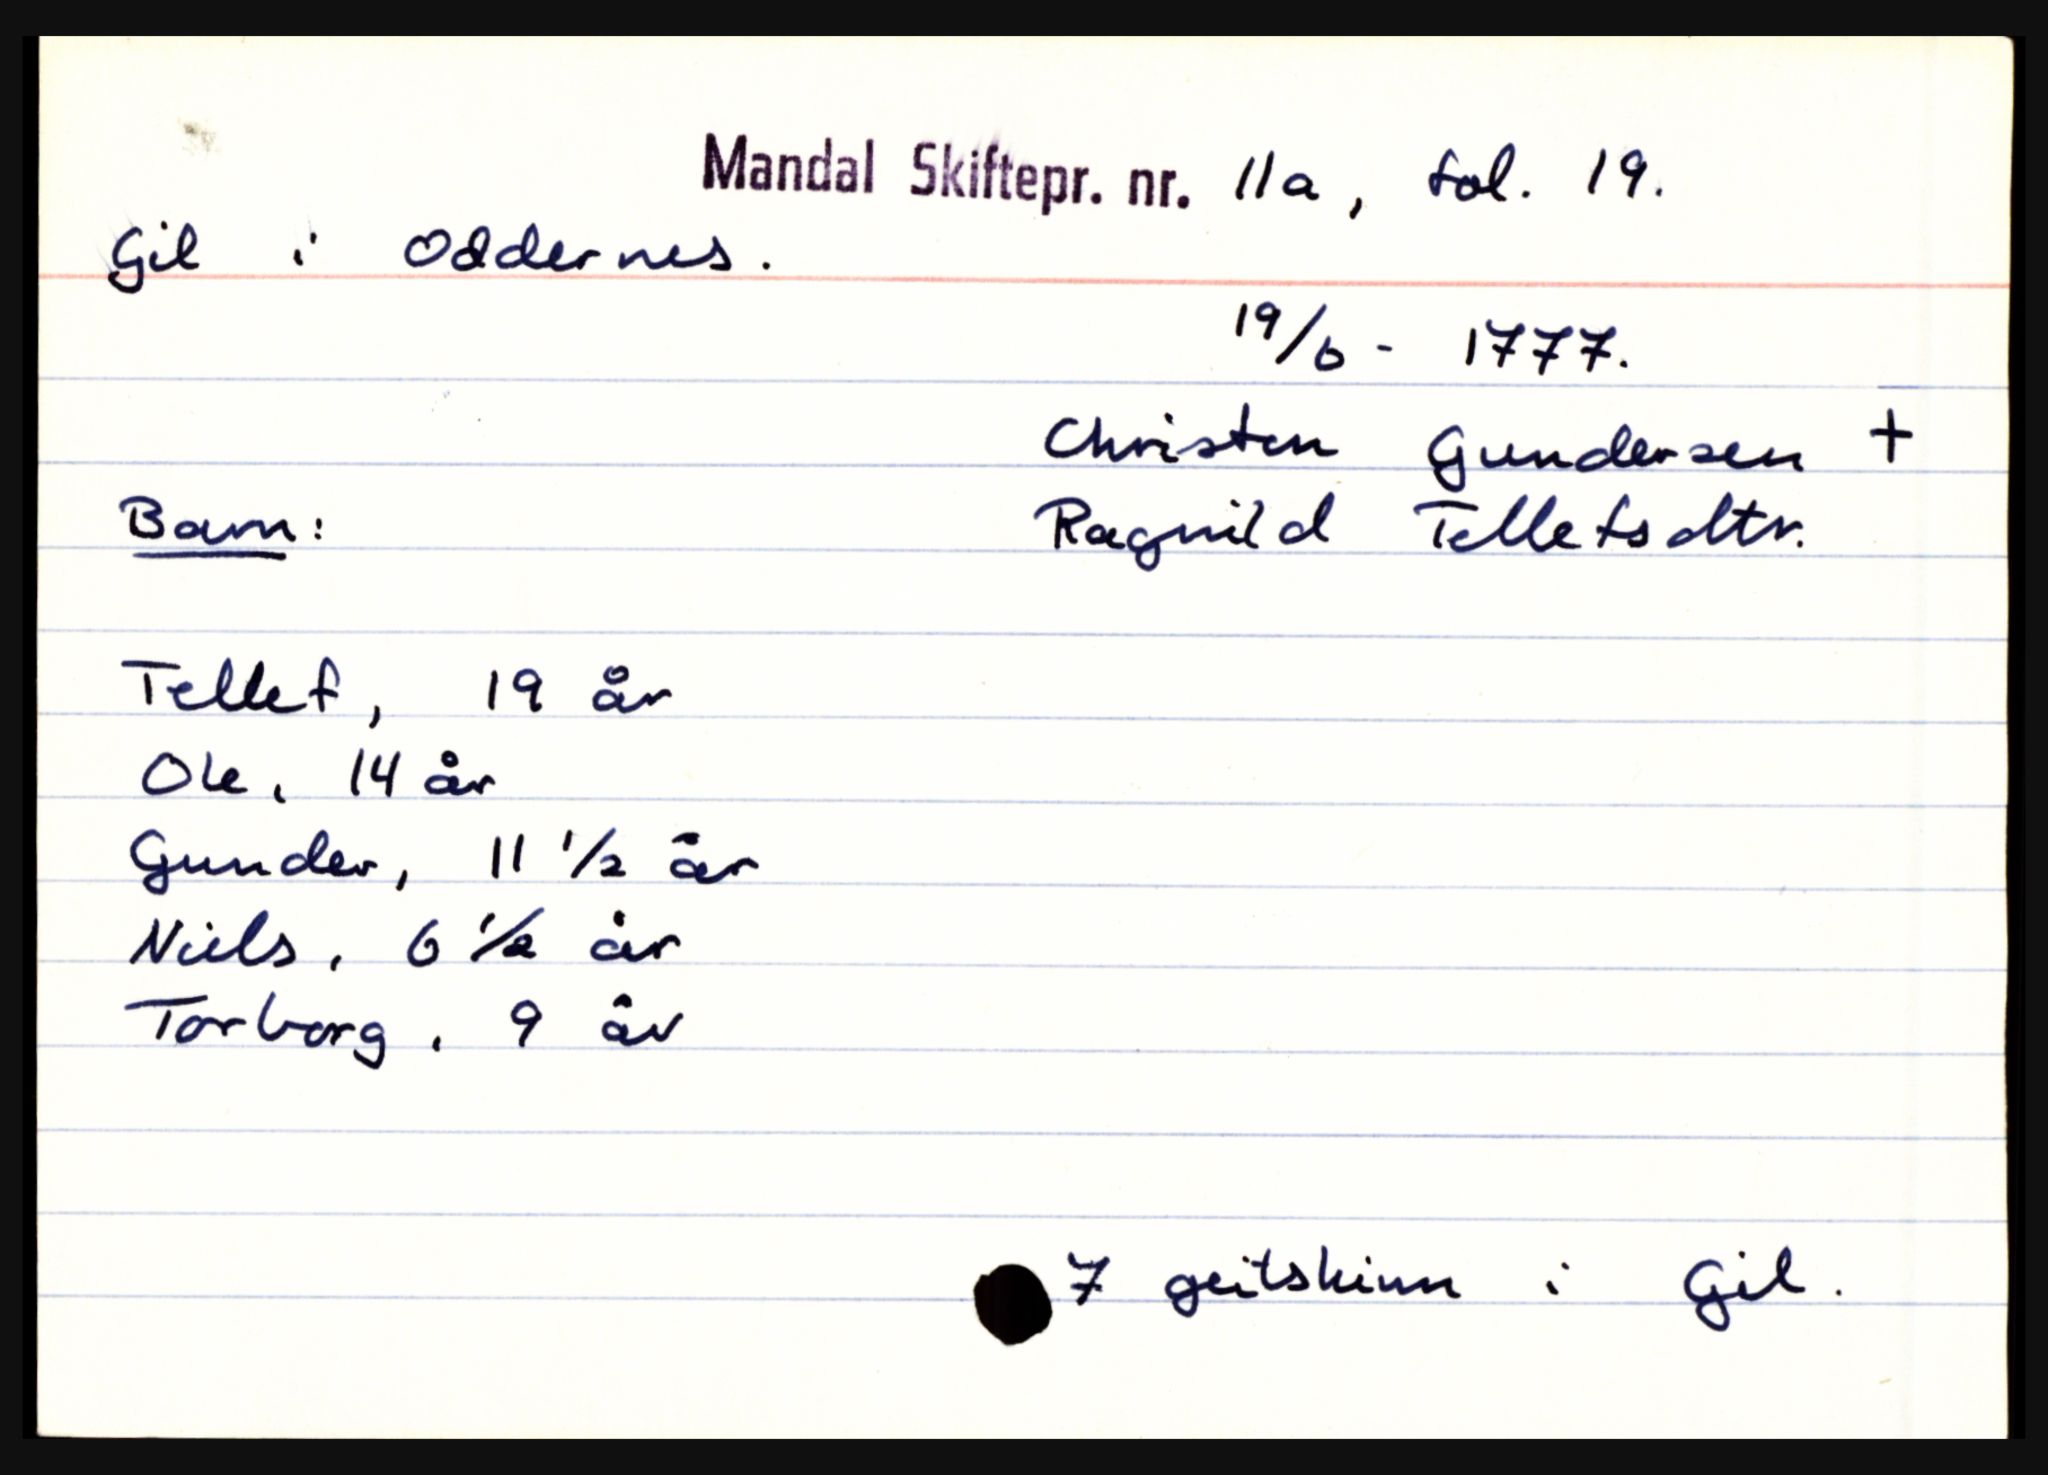 Mandal Skiftepr. nr. 11a, fol. 19.
Gil i Oddernes.
19/6 - 1777.
Christen Gundersen +
Barn: Ragnild Tellefsdtr.
Tellef, 19 år
Ole, 14 år
Gunder, 11 1/2 år
Niels, 6 1/2 år
Torborg, 9 år
7 geitskinn i Gil.